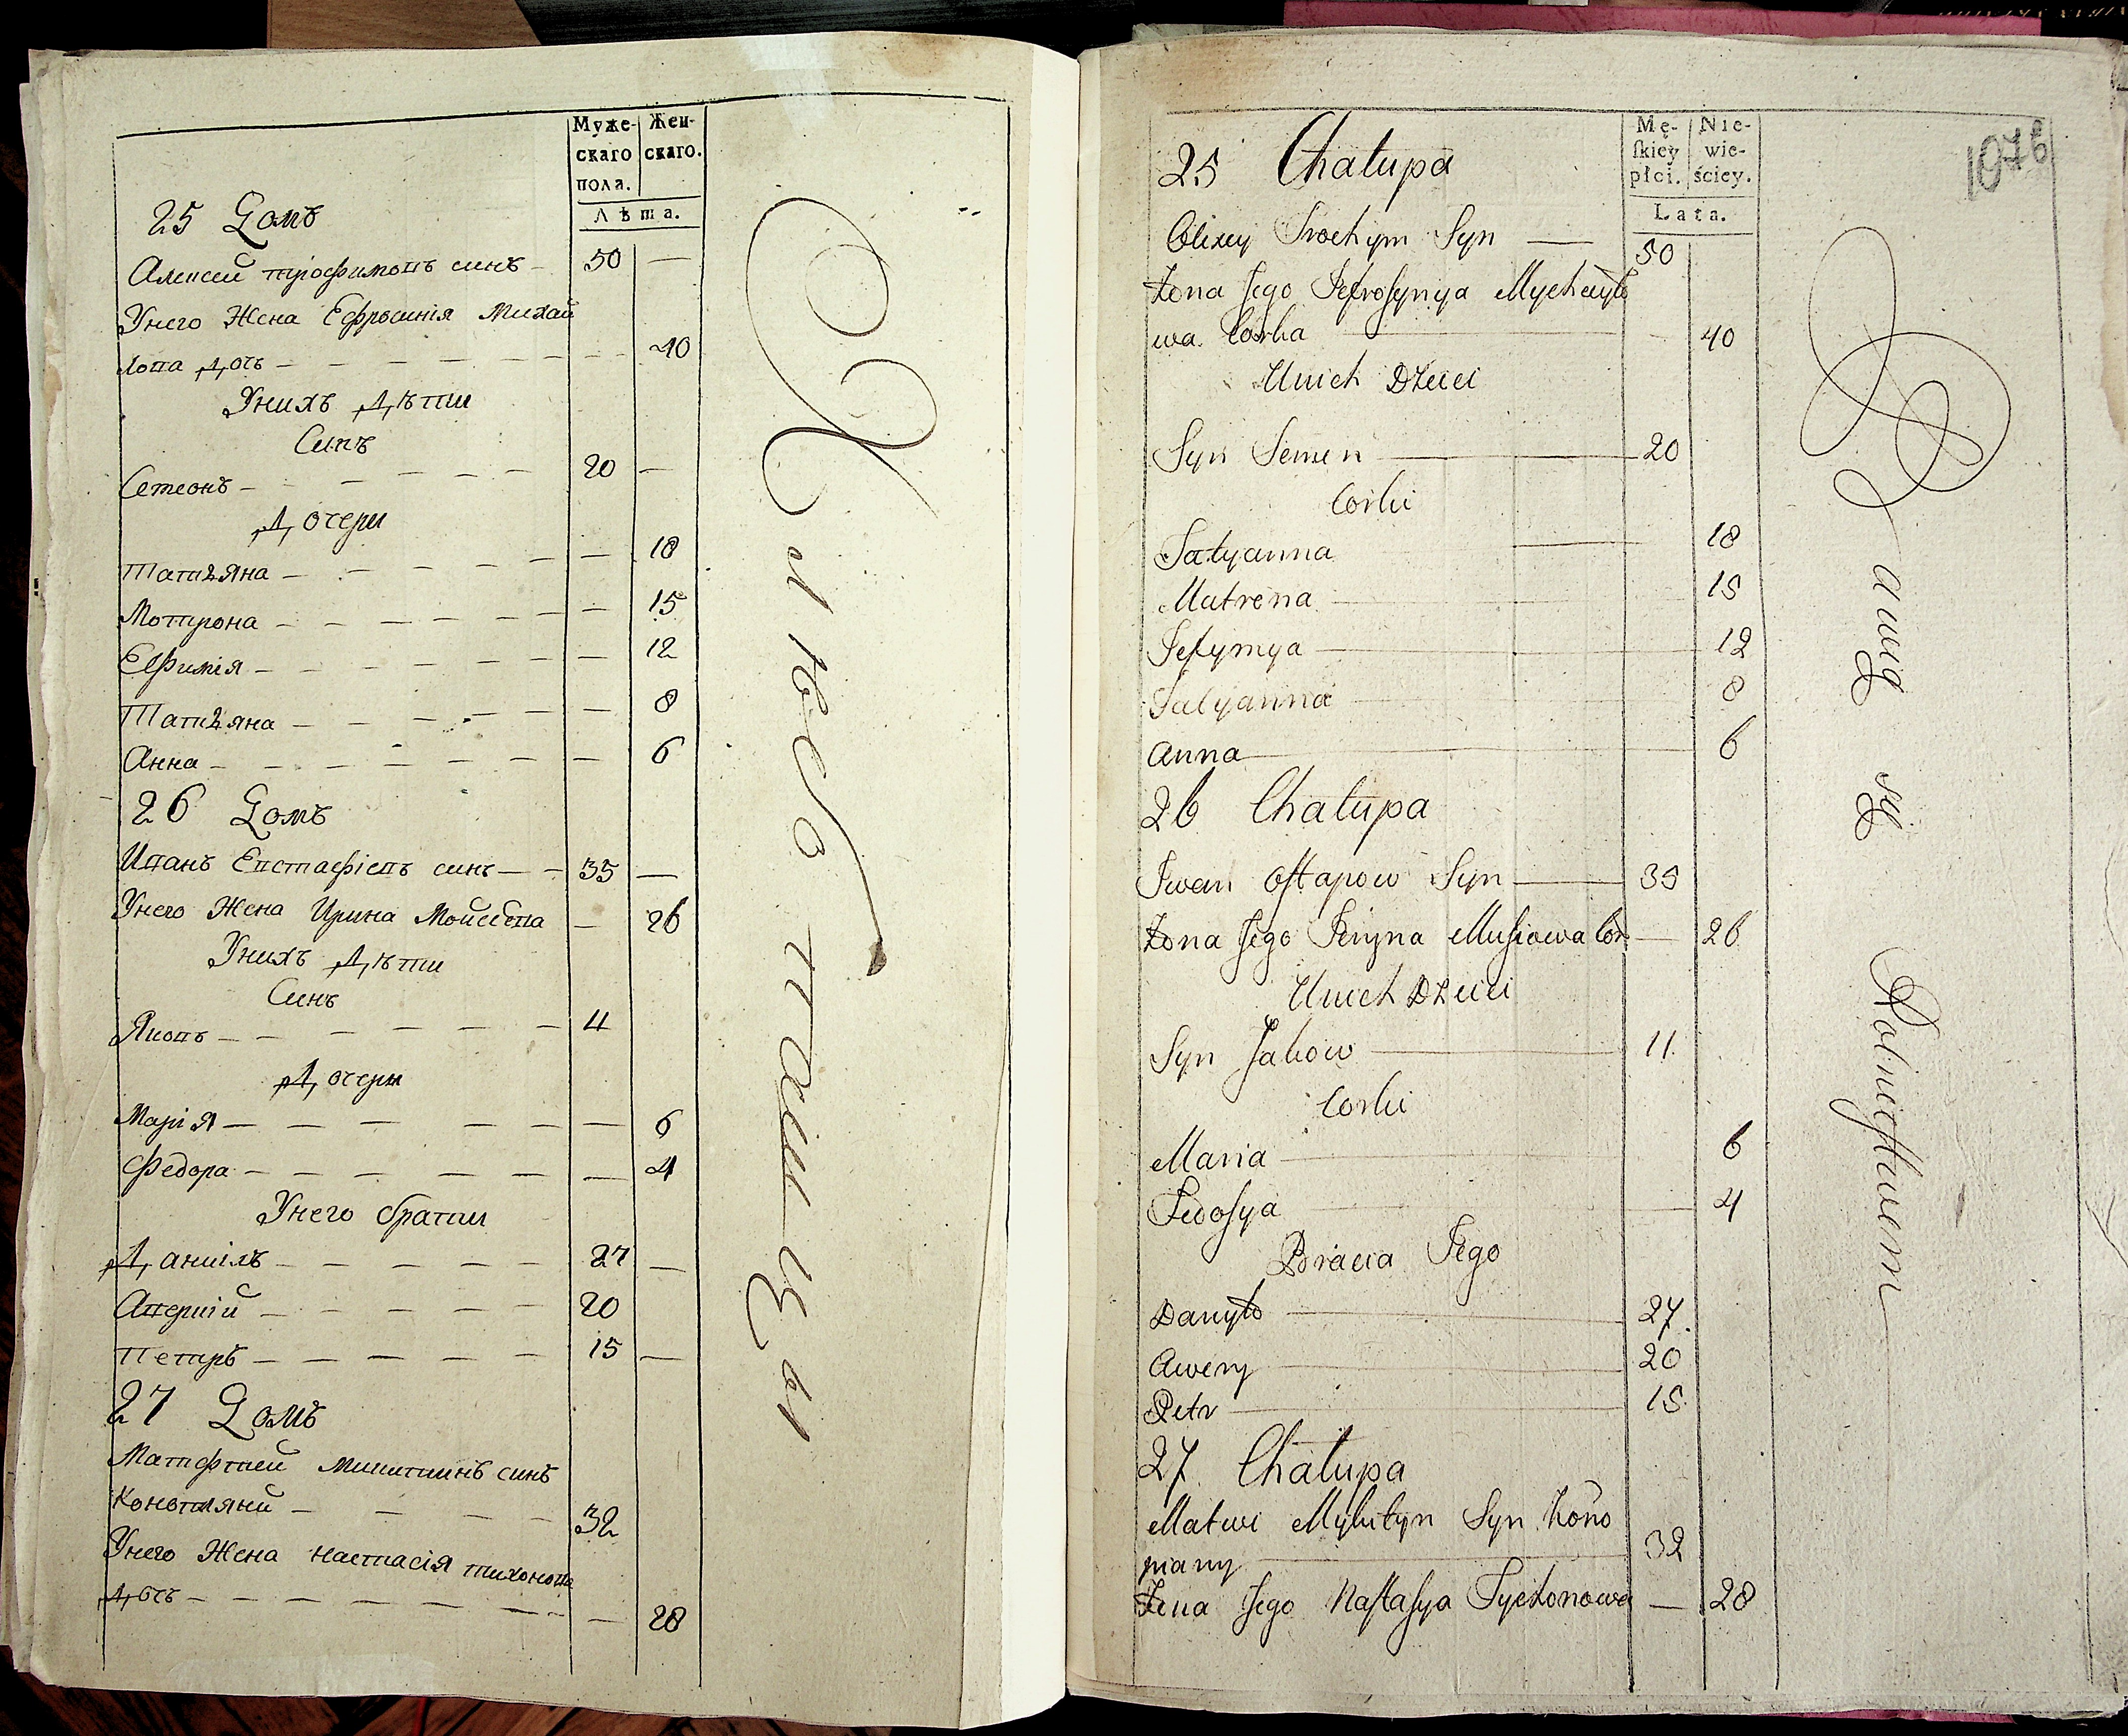 Муже-
скаго
пола.
Жен-
скаго.
Лѣта.
25 Домъ
Алексей трофимовъ синъ — 50 —
Унего Жена Ефросинія Михай
лова дочъ — 40
Унихъ дѣти
Синъ
Семеонъ — 20 —
дочери
татіяна — 18
Мотрона — 15
Ефимія — 12
татіяна — 8
Анна — 6
26 Домъ
Иванъ Евстафіевъ синъ — 35 —
Унего Жена Ирина Мойсеева — 26
Унихъ дѣти
Синъ
Яковъ — 4
дочери
Марія — 6
Федора — 4
Унего брати
даниілъ — 27 —
Аверкій — 20
Петръ — 15 —
27 Домъ
Матфтей микитинъ синъ
32
Унего Жена настасія тихонова
дочъ — 28
Mę-
ſkiey
płci.
Nie-
wie-
ściey.
Lata.
197b
25 Chałupa
Olixey Trochym Syn — 50
Zona Jego Jefroſynya Mychayło
wa Corka — 40
Unich Dzieci
Syn Semen — 20
Corki
Tatyanna — 18
Matrena — 15
Jefymya — 12
Tatyanna — 8
Anna — 6
26 Chałupa
Iwan Oſtapow Syn — 35
Zona Jego Jeryna Muſiowa Cor. — 26
Unich Dzieci
Syn Jakow — 11
Corki
Maria — 6
Fedoſya — 4
Bracia Jego
Danyło — 27.
Awery — 20
Petr — 15.
27 Chałupa
Matwi Mykityn Syn Kono
piany — 32
Zena Jego Naſtaſya Tychonowa — 28
Bawią się Rolnictwem